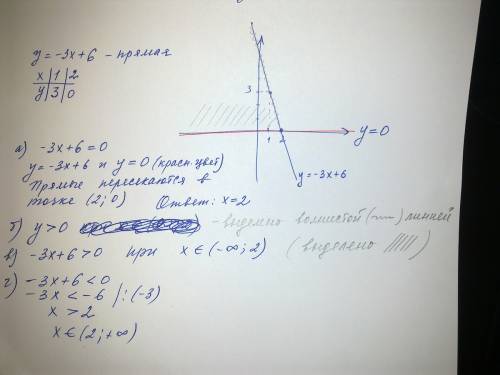 y = -3x+6 - прямая
x | 1 | 2
y | 3 | 0
3
1 2
y=0
y=-3x+6
а) -3x+6=0
y=-3x+6 и y=0 (красн. цвет)
Прямые пересекаются в
точке (2;0) Ответ: x=2
б) y>0 - выделено волнистой (~) линией
в) -3x+6>0 при x∈(-∞;2) (выделено /////)
г) -3x+6<0
-3x<-6 /:(-3)
x>2
x∈(2;+∞)